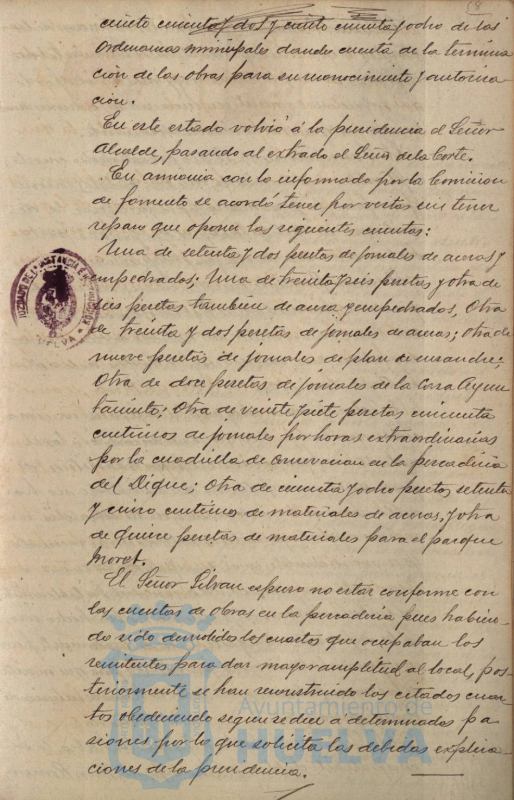 8
ciento cincuenta y dos y ciento cincuenta y ocho de las
Ordenanzas municipales dandose cuenta de la termina
ción de las obras para su reconocimiento y autoriza
ción.
En este estado volvió á la presidencia el Señor
Alcalde, pasando al extrado el Señor de la Corte.
En armonia con lo informado por la Comision
de fomento se acordó tener por vistas sin tener
reparo que oponer las siguientes cuentas:
Una de setenta y dos pesetas de jornales de aceras y
empedrados; Una de treinta y seis pesetas y otra de
seis pesetas tambien de acera y empedrados, Otra
de treinta y dos pesetas de jornales de aceras; otra de
nueve pesetas de jornales de plan de ensanche;
Otra de doce pesetas de jornales de la Casa Ayun
tamiento; Otra de veinte y siete pesetas cincuenta
centimos de jornales por horas extraordinarias
por la cuadrilla de Conservacion en la pescaderia
del Dique; Otra de cincuenta y ocho pesetas, setenta
y cinco centimos de materiales de aceras, y otra
de quince pesetas de materiales para el parque
Moret.
El Señor Silvan expuso no estar conforme con
las cuentas de obras en la pescaderia pues habien
do sido demolidos los cuartos que ocupaban los
remitentes para dar mayor amplitud al local, pos-
teriormente se han reconstruido los citados cuar
tos obedeciendo segun se dice á determinadas pa
siones por lo que solicita las debidas explica
ciones de la presidencia.
HUELVA
Ayuntamiento de
HUELVA